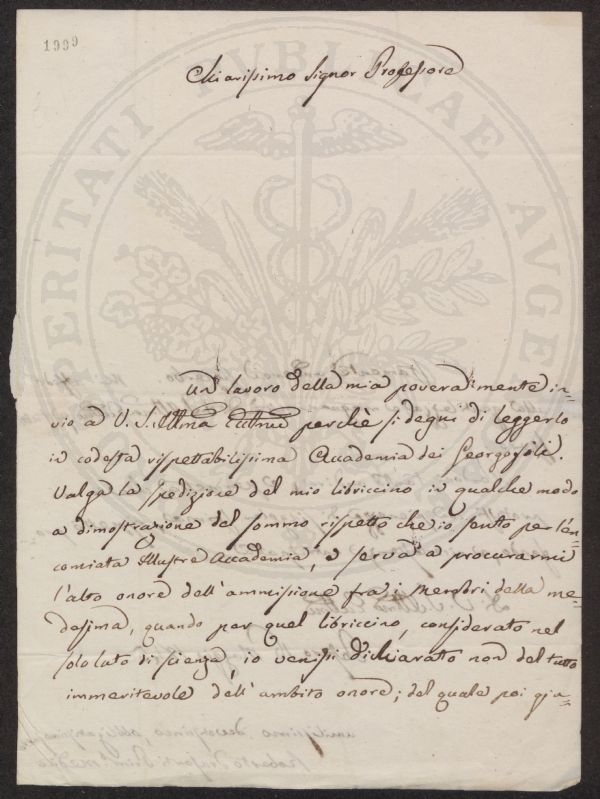 1999
PROSPERITATI PUBLICAE AUGE
Chiarissimo Signor Professore
Un lavoro della mia povera mente in-
vio ad V. S. Illma perchè si degni di leggerlo
in codesta rispettabilissima Accademia dei Georgofili.
Valga la spedizione del mio libriccino in qualche modo
a dimostrazione del sommo rispetto che io sento per l'en-
comiata Illustre Accademia, e serva a procurarmi
l'alto onore dell'ammissione fra i Membri della me-
desima, quando per quel libriccino, considerato nel
solo lato di scienza, io venissi dichiarato non del tutto
immeritevole dell'ambito onore; del quale poi gia-